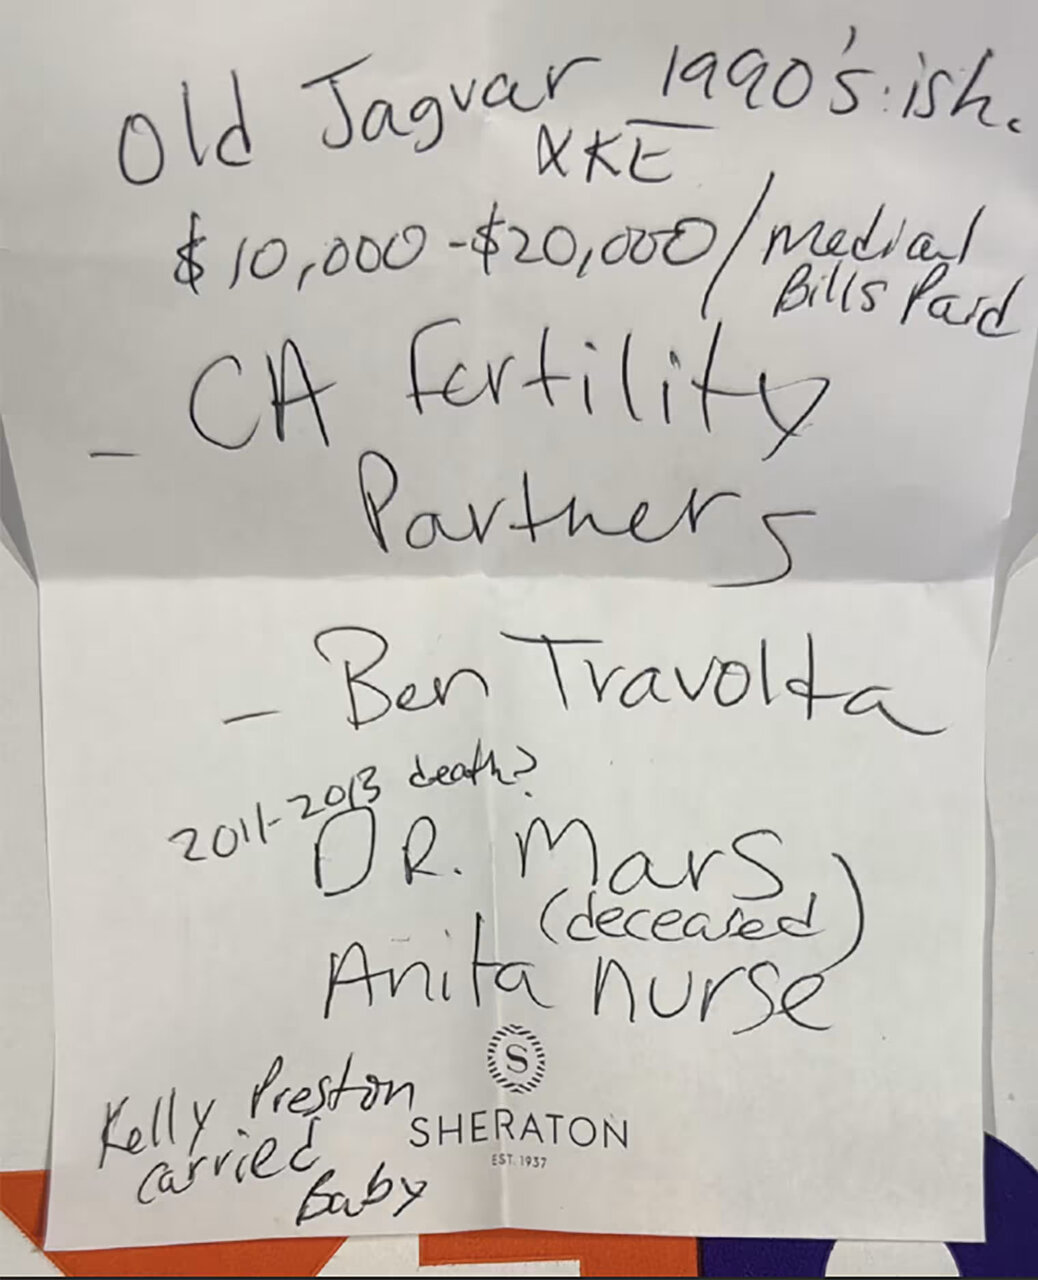 Old Jaguar 1990's:ish.
XKE
$10,000-$20,000/Medical
Bills Paid
- CA Fertility
Partners
- Ben Travolta
2011-2013 death?
DR. Mars
(deceased)
Anita nurse
S
Kelly Preston
carried
Baby
SHERATON
EST. 1937